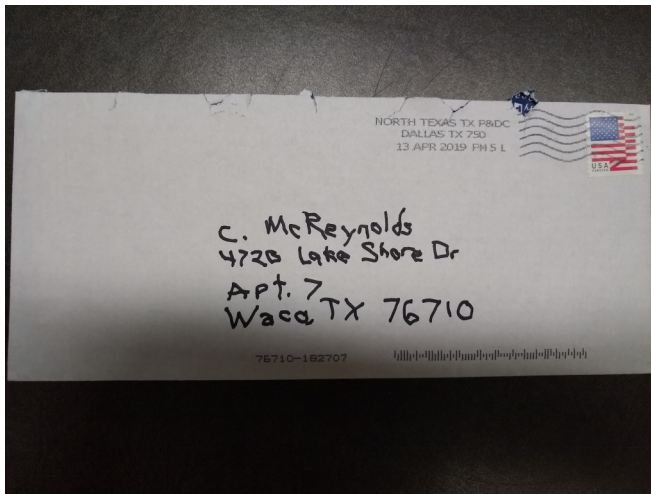 NORTH TEXAS TX P&DC
DALLAS TX 750
13 APR 2019 PM 5 L
USA
C. McReynolds
4728 Lake Shore Dr
Apt. 7
Waco TX 76710
76710-182707